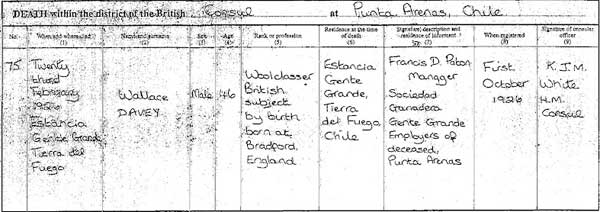 DEATH within the district of the British Consul at Punta Arenas, Chile
No. When and where died (1) Name and surname (2) Sex (3) Age (4) Rank or profession (5) Residence at the time of death (6) Signature, description and residence of informant (7) When registered (8) Signature of consular officer (9)
75
Twenty
third
February
1926
Estancia
Gente Grand
Tierra del
Fuego
Wallace
DAVEY
Male
46
Woolclasser
British
subject
by birth
born at
Bradford,
England
Estancia
Gente
Grande,
Tierra
del Fuego
Chile
Francis D. Paton
Manager
Sociedad
Ganadera
Gente Grande
Employers of
deceased,
Punta Arenas
First
October
1926
K.I.M.
White
H.M.
Consul